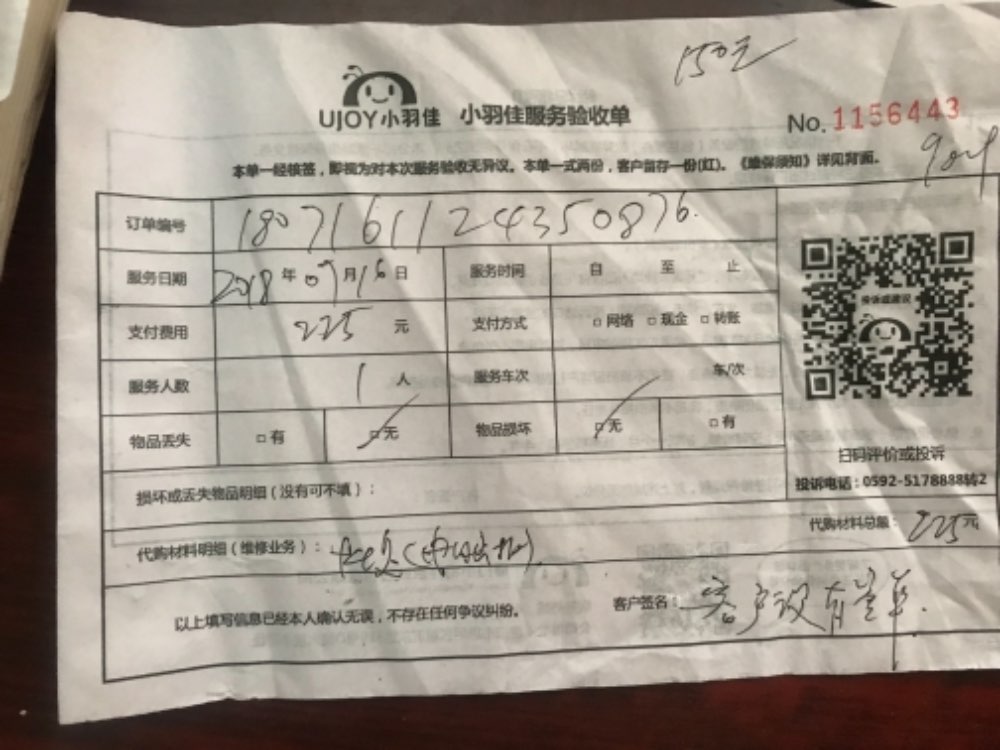 150元
UJOY小羽佳 小羽佳服务验收单
No. 1156443
本单一经核签，即视为对本次服务验收无异议。本单一式两份，客户留存一份(红)。《维保须知》详见背面。
订单编号 1807161124350876.
服务日期 2018年07月16日 服务时间 自 至 止
支付费用 225元 支付方式 □网络 □现金 □转账
服务人数 1人 服务车次 车/次
物品丢失 □有 □无 物品损坏 □无 □有
投诉或建议
扫码评价或投诉
投诉电话：0592-5178888转2
损坏或丢失物品明细（没有可不填）：
代购材料明细（维修业务）：
代购材料总额：225元
以上填写信息已经本人确认无误，不存在任何争议纠纷。
客户签名：客户没有签单.